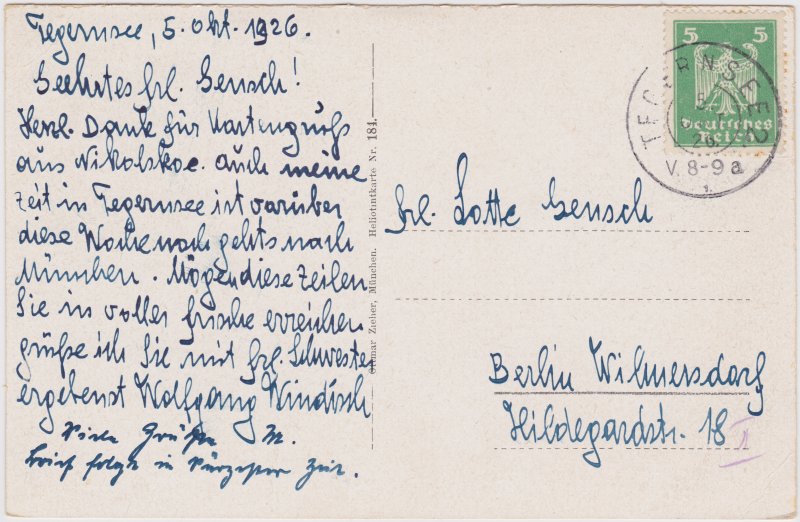 Tegernsee, 5. Okt. 1926.
Geehrtes Frl. Gensch!
Herzl. Dank für Kartengruß
aus Nikolskoe. Auch meine
Zeit in Tegernsee ist vorüber
diese Woche noch gehts nach
München. Mögen diese Zeilen
Sie in voller Frische erreichen
grüße ich Sie mit Frl. Schwester
ergebenst Wolfgang Windisch
Viele Grüße M.
Brief folgt in kürzester Zeit.
Ottmar Zieher, München. Heliotintkarte Nr. 184.
5 5
Deutsches
Reich
TEGERNSEE 2
5
26
V. 8-9 a
1.
Frl. Lotte Gensch
Berlin Wilmersdorf
Hildegardstr. 18 I